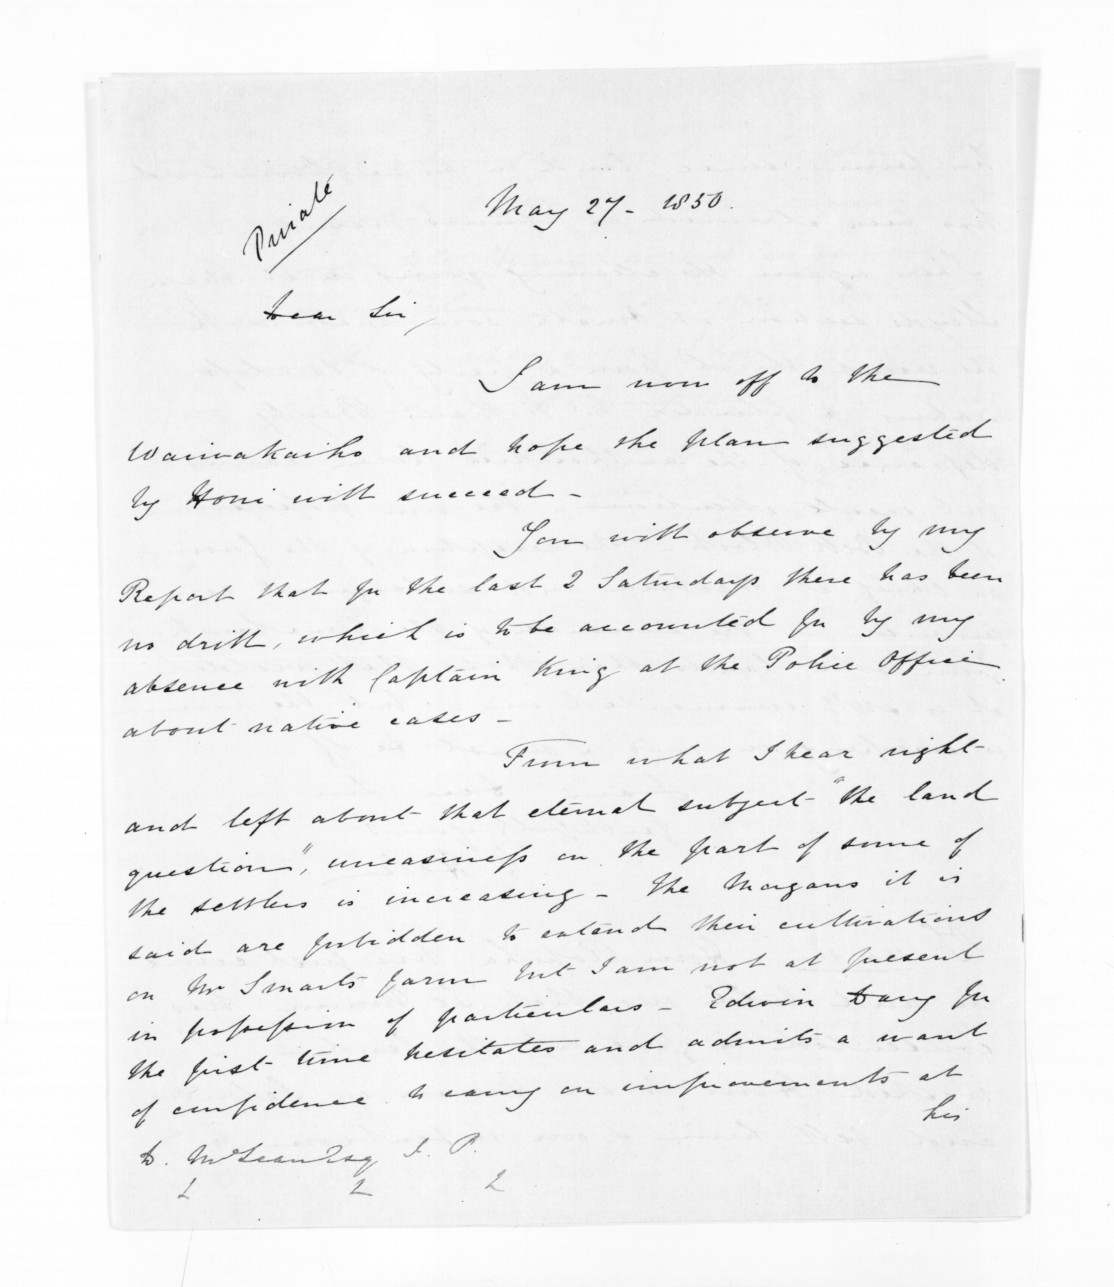 Private
May 27 - 1850.
Dear Sir,
I am now off to the
Waiwakaiho and hope the plan suggested
by Honi will succeed -
You will observe by my
Report that for the last 2 Saturdays there has been
no drill, which is to be accounted for by my
absence with Captain King at the Police Office
about native cases -
From what I hear right
and left about that eternal subject "the land
question", uneasiness on the part of some of
the settlers is increasing - The Morgans it is
said are forbidden to extend their cultivations
on Mr Smart's farm but I am not at present
in possession of particulars - Edwin Davy for
the first time hesitates and admits a want
of confidence to carry on improvements at
his
D. McLean Esq J. P.